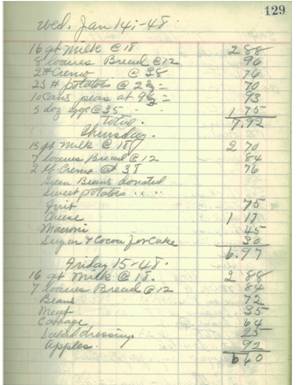 129
Wed. Jan 14; - 48.
16 qt Milk @ 18 2 88
8 loaves Bread @ 12 96
2 # Cremo @ 38 76
25 # Potatoes @ 2 70
10 Cans peas at 73
5 doz Eggs @ 35 1 75
Total. 7.92
Thursday.
15 qt Milk @ 18 2 70
7 loaves Bread @ 12 84
2 lb Cremo @ 38 76
Beans donated
Sweet potatoes " "
Fruit 75
Cheese 1 17
Macroni 45
Sugar & Cocoa for Cake 30
6.97
Friday 15 - 48.
16 qt Milk @ 18. 2 88
7 loaves Bread @ 12 84
Beans 72
Meat 35
Cabbage 64
Salad dressing 25
Apples 92
6 60